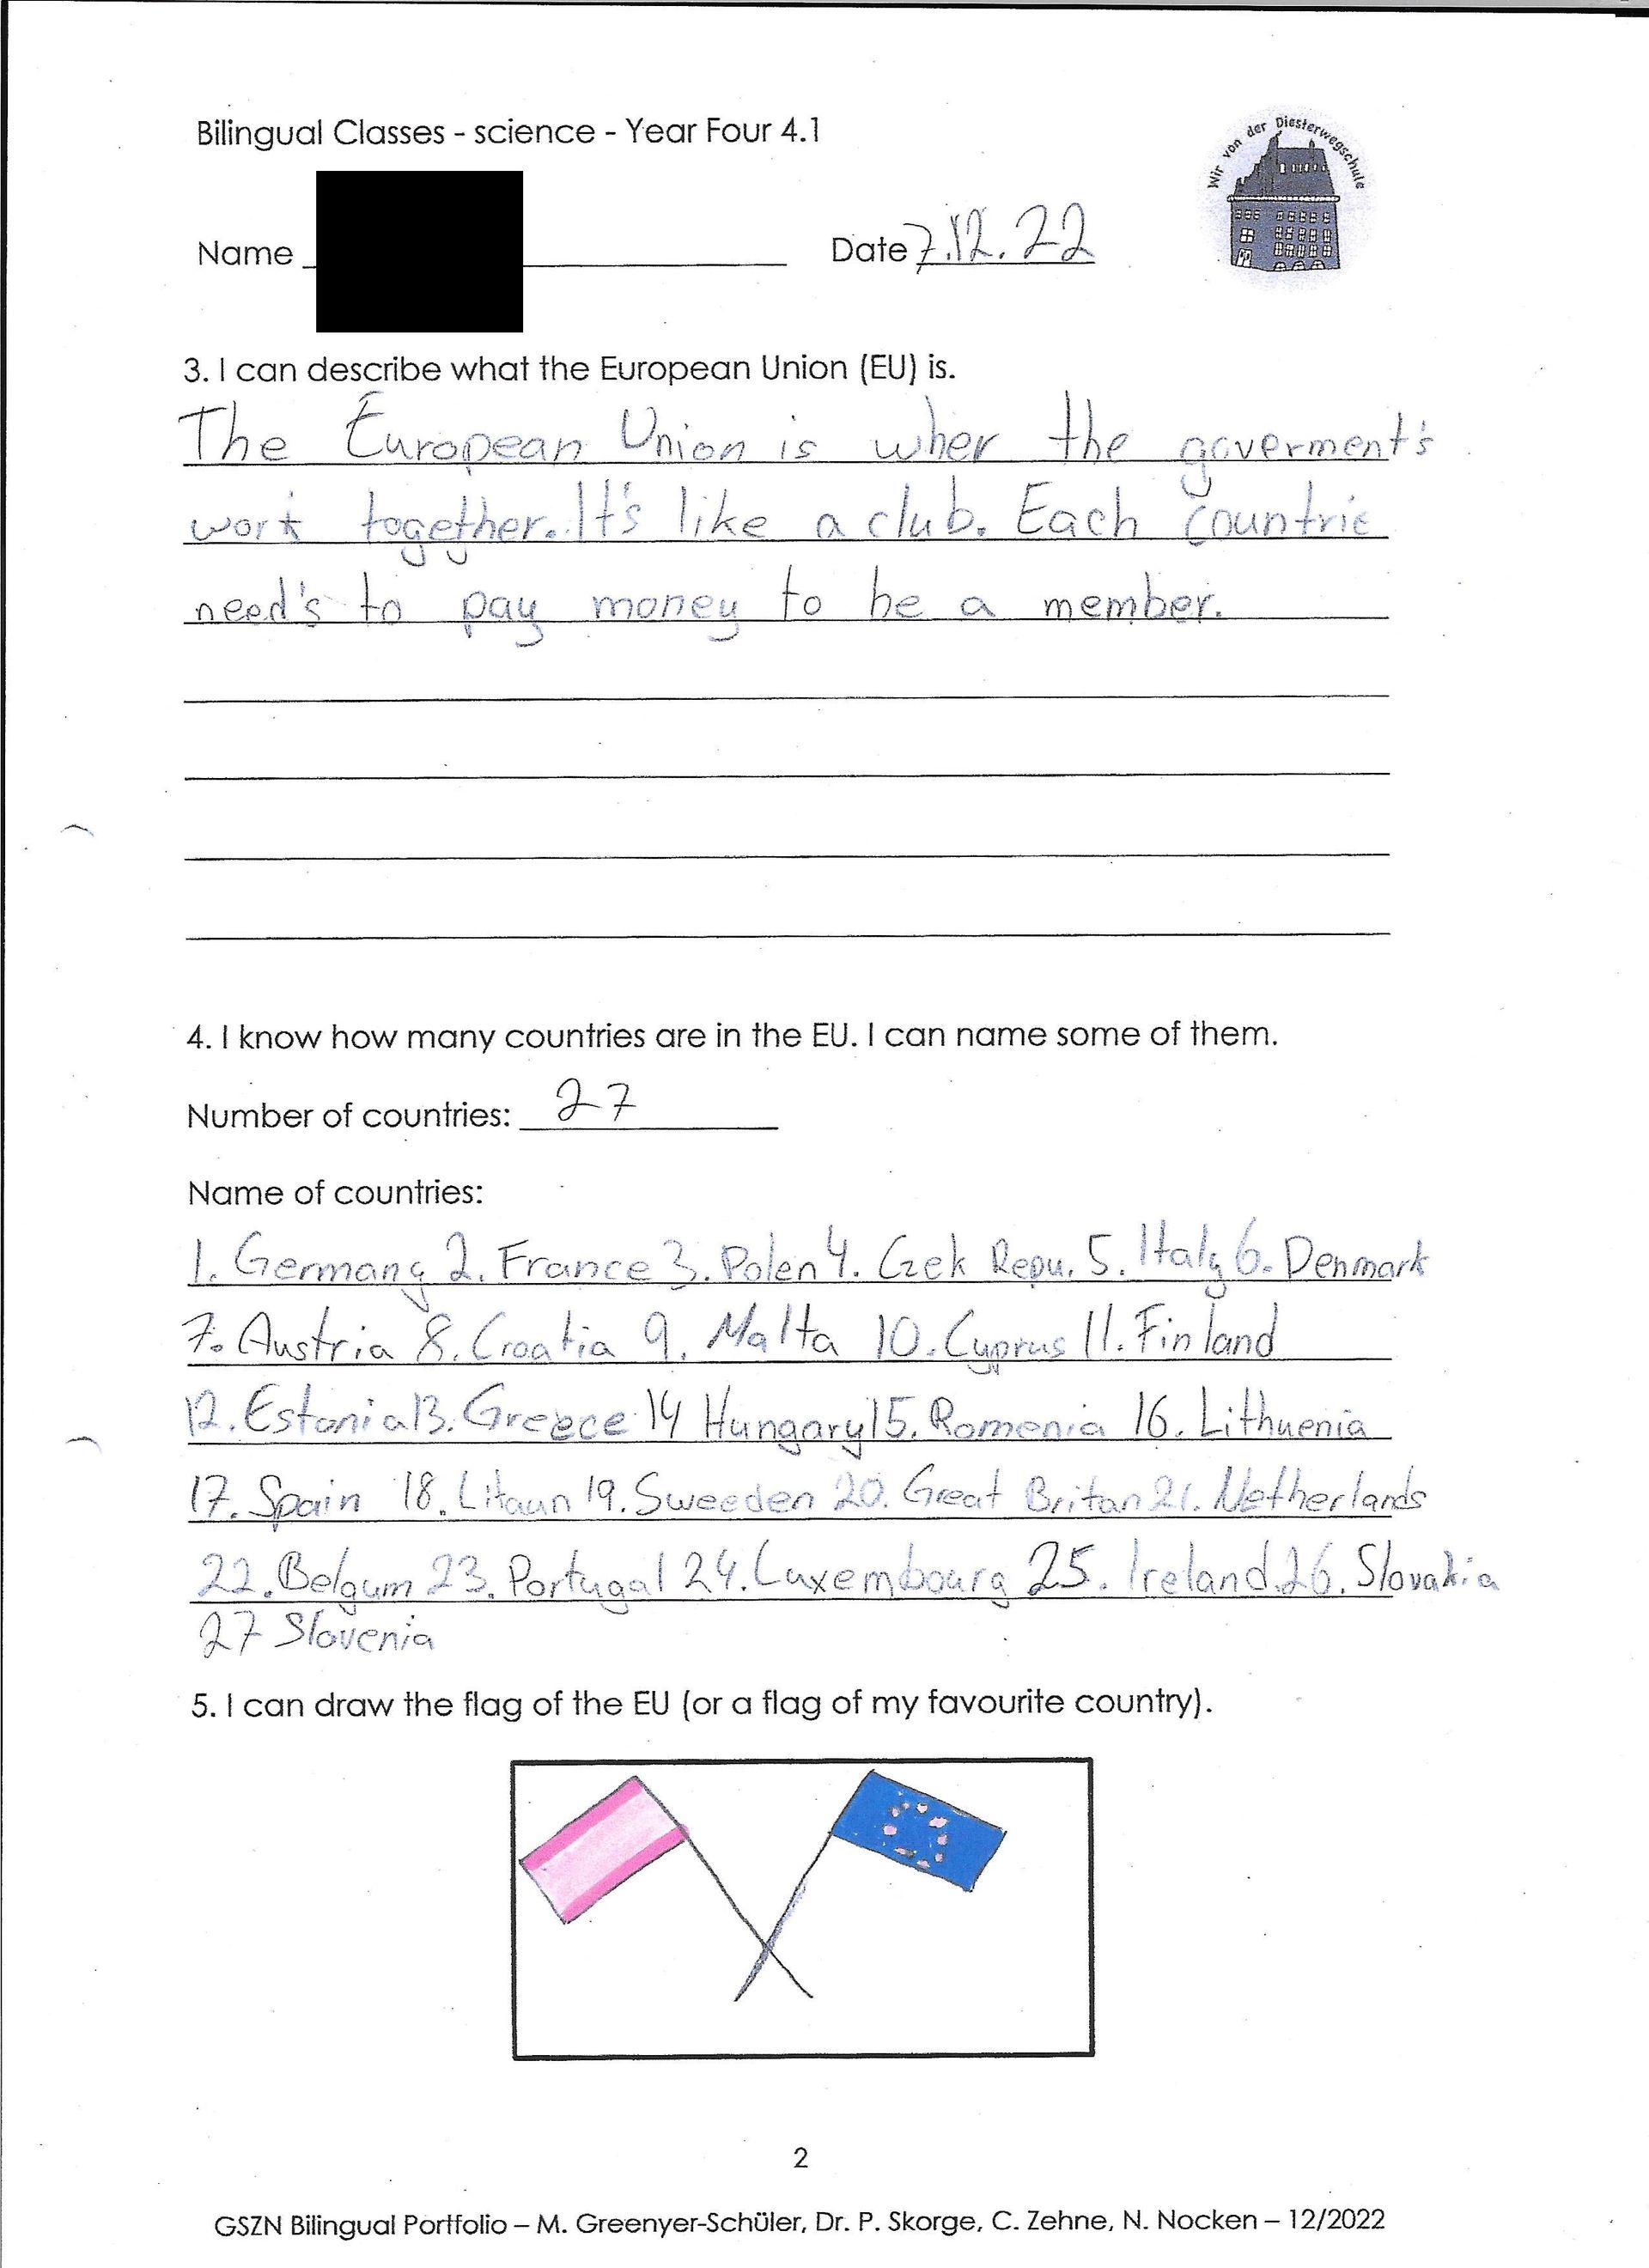 Bilingual Classes - science - Year Four 4.1
Wir von der Diesterwegschule
Name
Date 7.12.22
3. I can describe what the European Union (EU) is.
The European Union is wher the goverment's
work together. It's like a club. Each countrie
need's to pay money to be a member.
4. I know how many countries are in the EU. I can name some of them.
Number of countries: 27
Name of countries:
1. Germany 2. France 3. Polen 4. Czek Repu. 5. Italy 6. Denmark
7. Austria 8. Croatia 9. Malta 10. Cyprus 11. Finland
12. Estonia 13. Greece 14 Hungary 15. Romenia 16. Lithuenia
17. Spain 18. Litaun 19. Sweeden 20. Great Britan 21. Netherlands
22. Belgum 23. Portugal 24. Luxembourg 25. Ireland. 26. Slovakia
27 Slovenia
5. I can draw the flag of the EU (or a flag of my favourite country).
2
GSZN Bilingual Portfolio – M. Greenyer-Schüler, Dr. P. Skorge, C. Zehne, N. Nocken – 12/2022